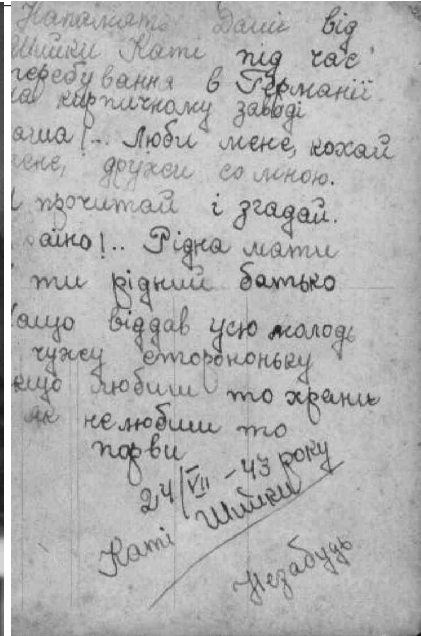 Напамять Даші від
Шийки Каті під час
перебування в Германії
на кирпичному заводі
аша!.. Люби мене, кохай
мене, дружи со мною.
прочитай і згадай.
аїно!.. Рідна мати
ти рідний батько
ащо віддав усю молодь
чужу сторононьку
кщо любиш то храни
як нелюбиш то
порви
24/VII - 43 року
Шийки
Каті
Незабудь